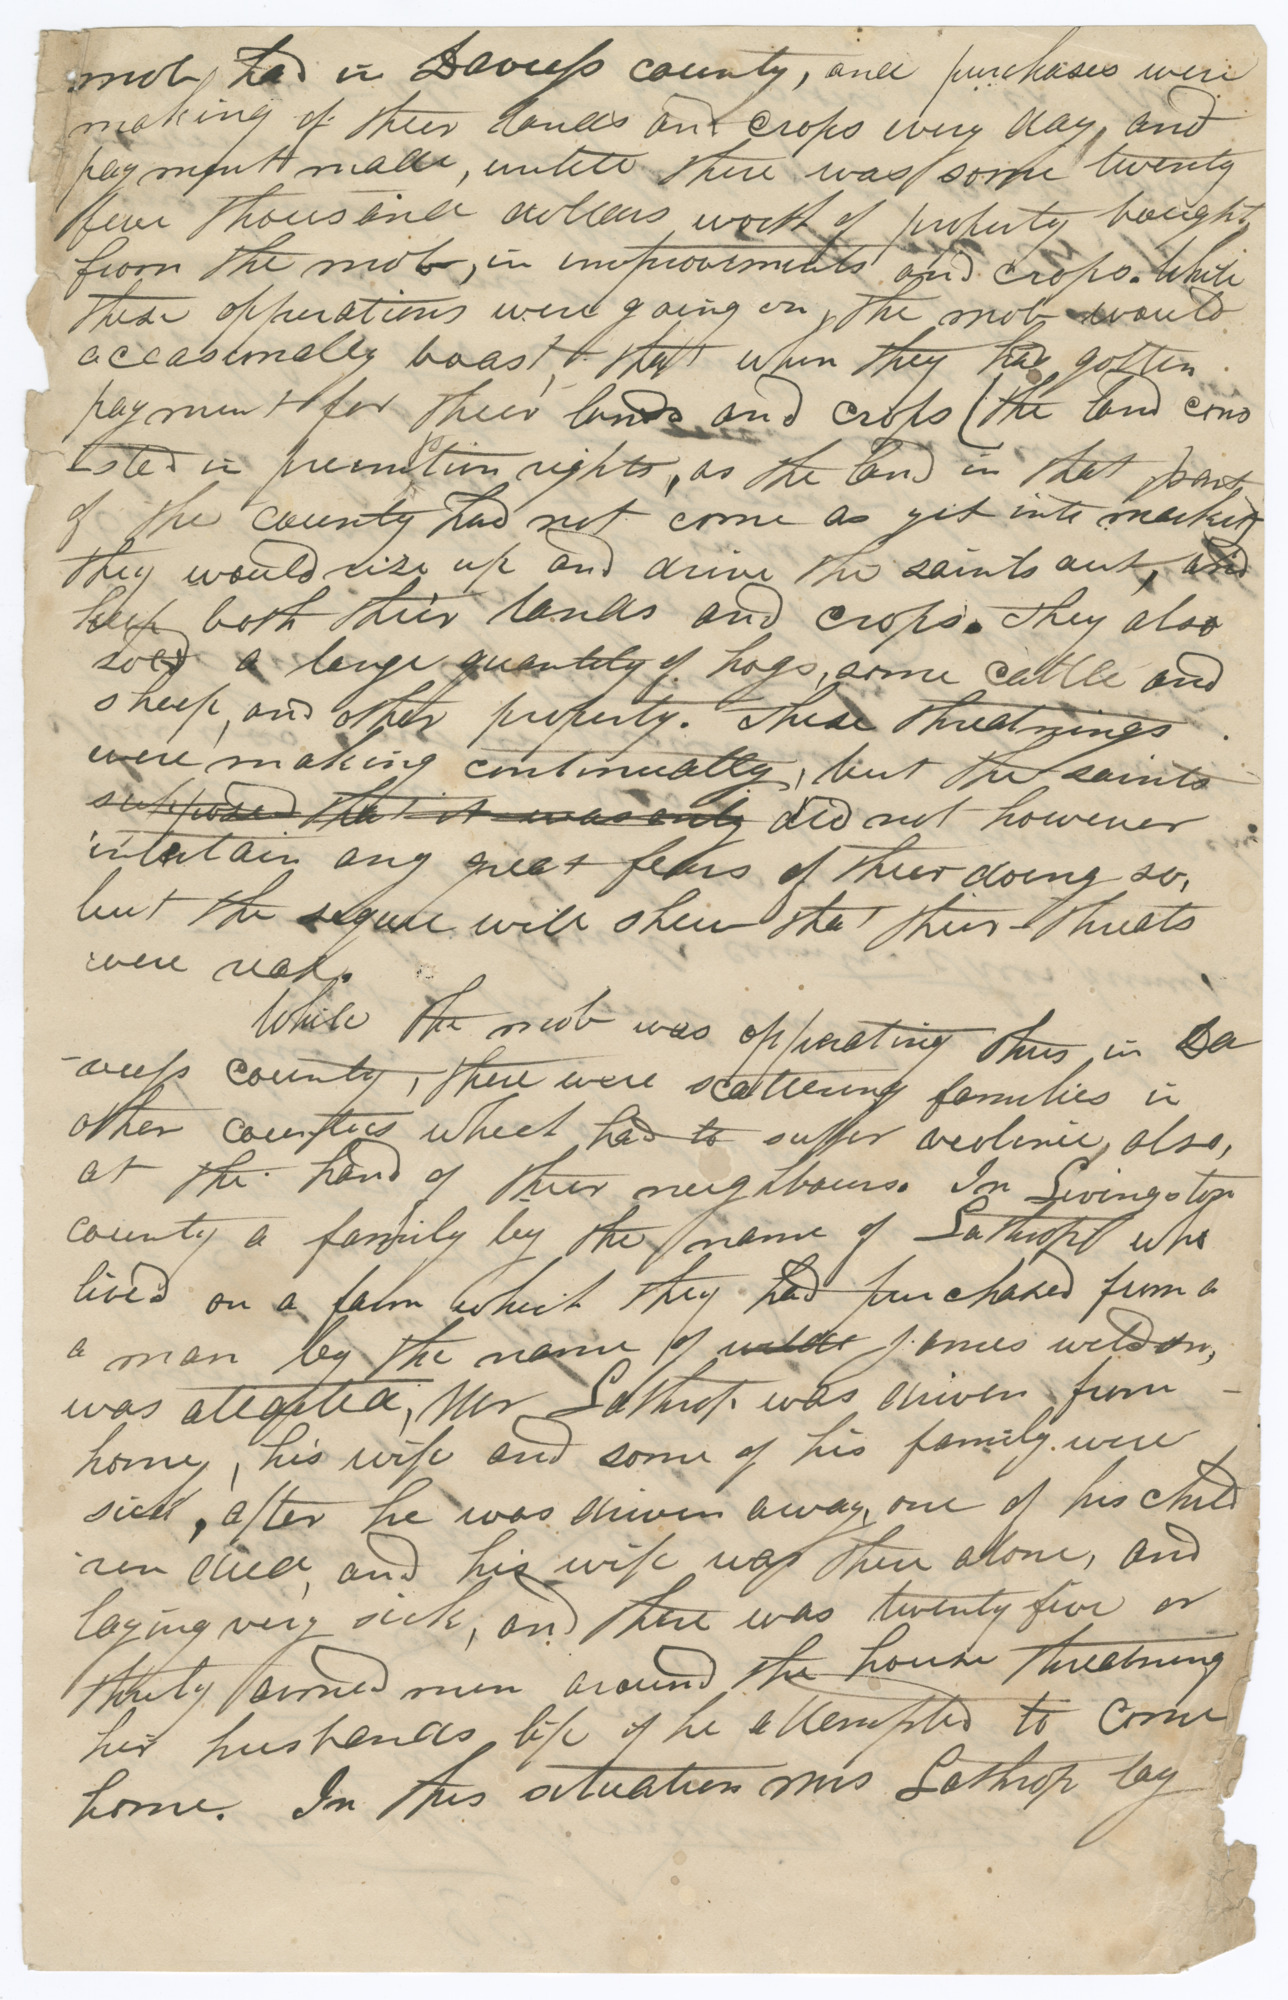 mob, had in Daviess county, and purchases were
making of their lands and crops every day, and
payment made, untill there was some twenty
five thousand dollars worth of property bought
from the mob, in improvements and crops. While
these opperations were going on, the mob would
occasionally boast, that when they had gotten
payment for their lands and crops (the land cons
-isted in preemption rights, as the land in that part
of the county had not come as yet into market)
they would rise up and drive the saints out, and
keep both their lands and crops. They also
sold a large quantity of hogs, some cattle and
sheep, and other property. These threatnings
were making continually, but the saints
supposed that it was only did not however
intertain any great fears of their doing so,
but the sequel will shew that their threats
were real.
While the mob was opperating thus in Da
-viess county, there were scattering families in
other counties which had to suffer violence, also,
at the hand of their neighbours. In Livingston
county a family by the name of Lathrop who
lived on a farm which they had purchased from a
a man by the name of James weldon,
was attacted, Mr Lathrop was driven from
home, his wife and some of his family were
sick, after he was driven away, one of his child
-ren died, and his wife was there alone, and
laying very sick, and there was twenty five or
thirty armed men around the house threatning
her husbands life if he attempted to come
home. In this situation mrs Lathrop lay